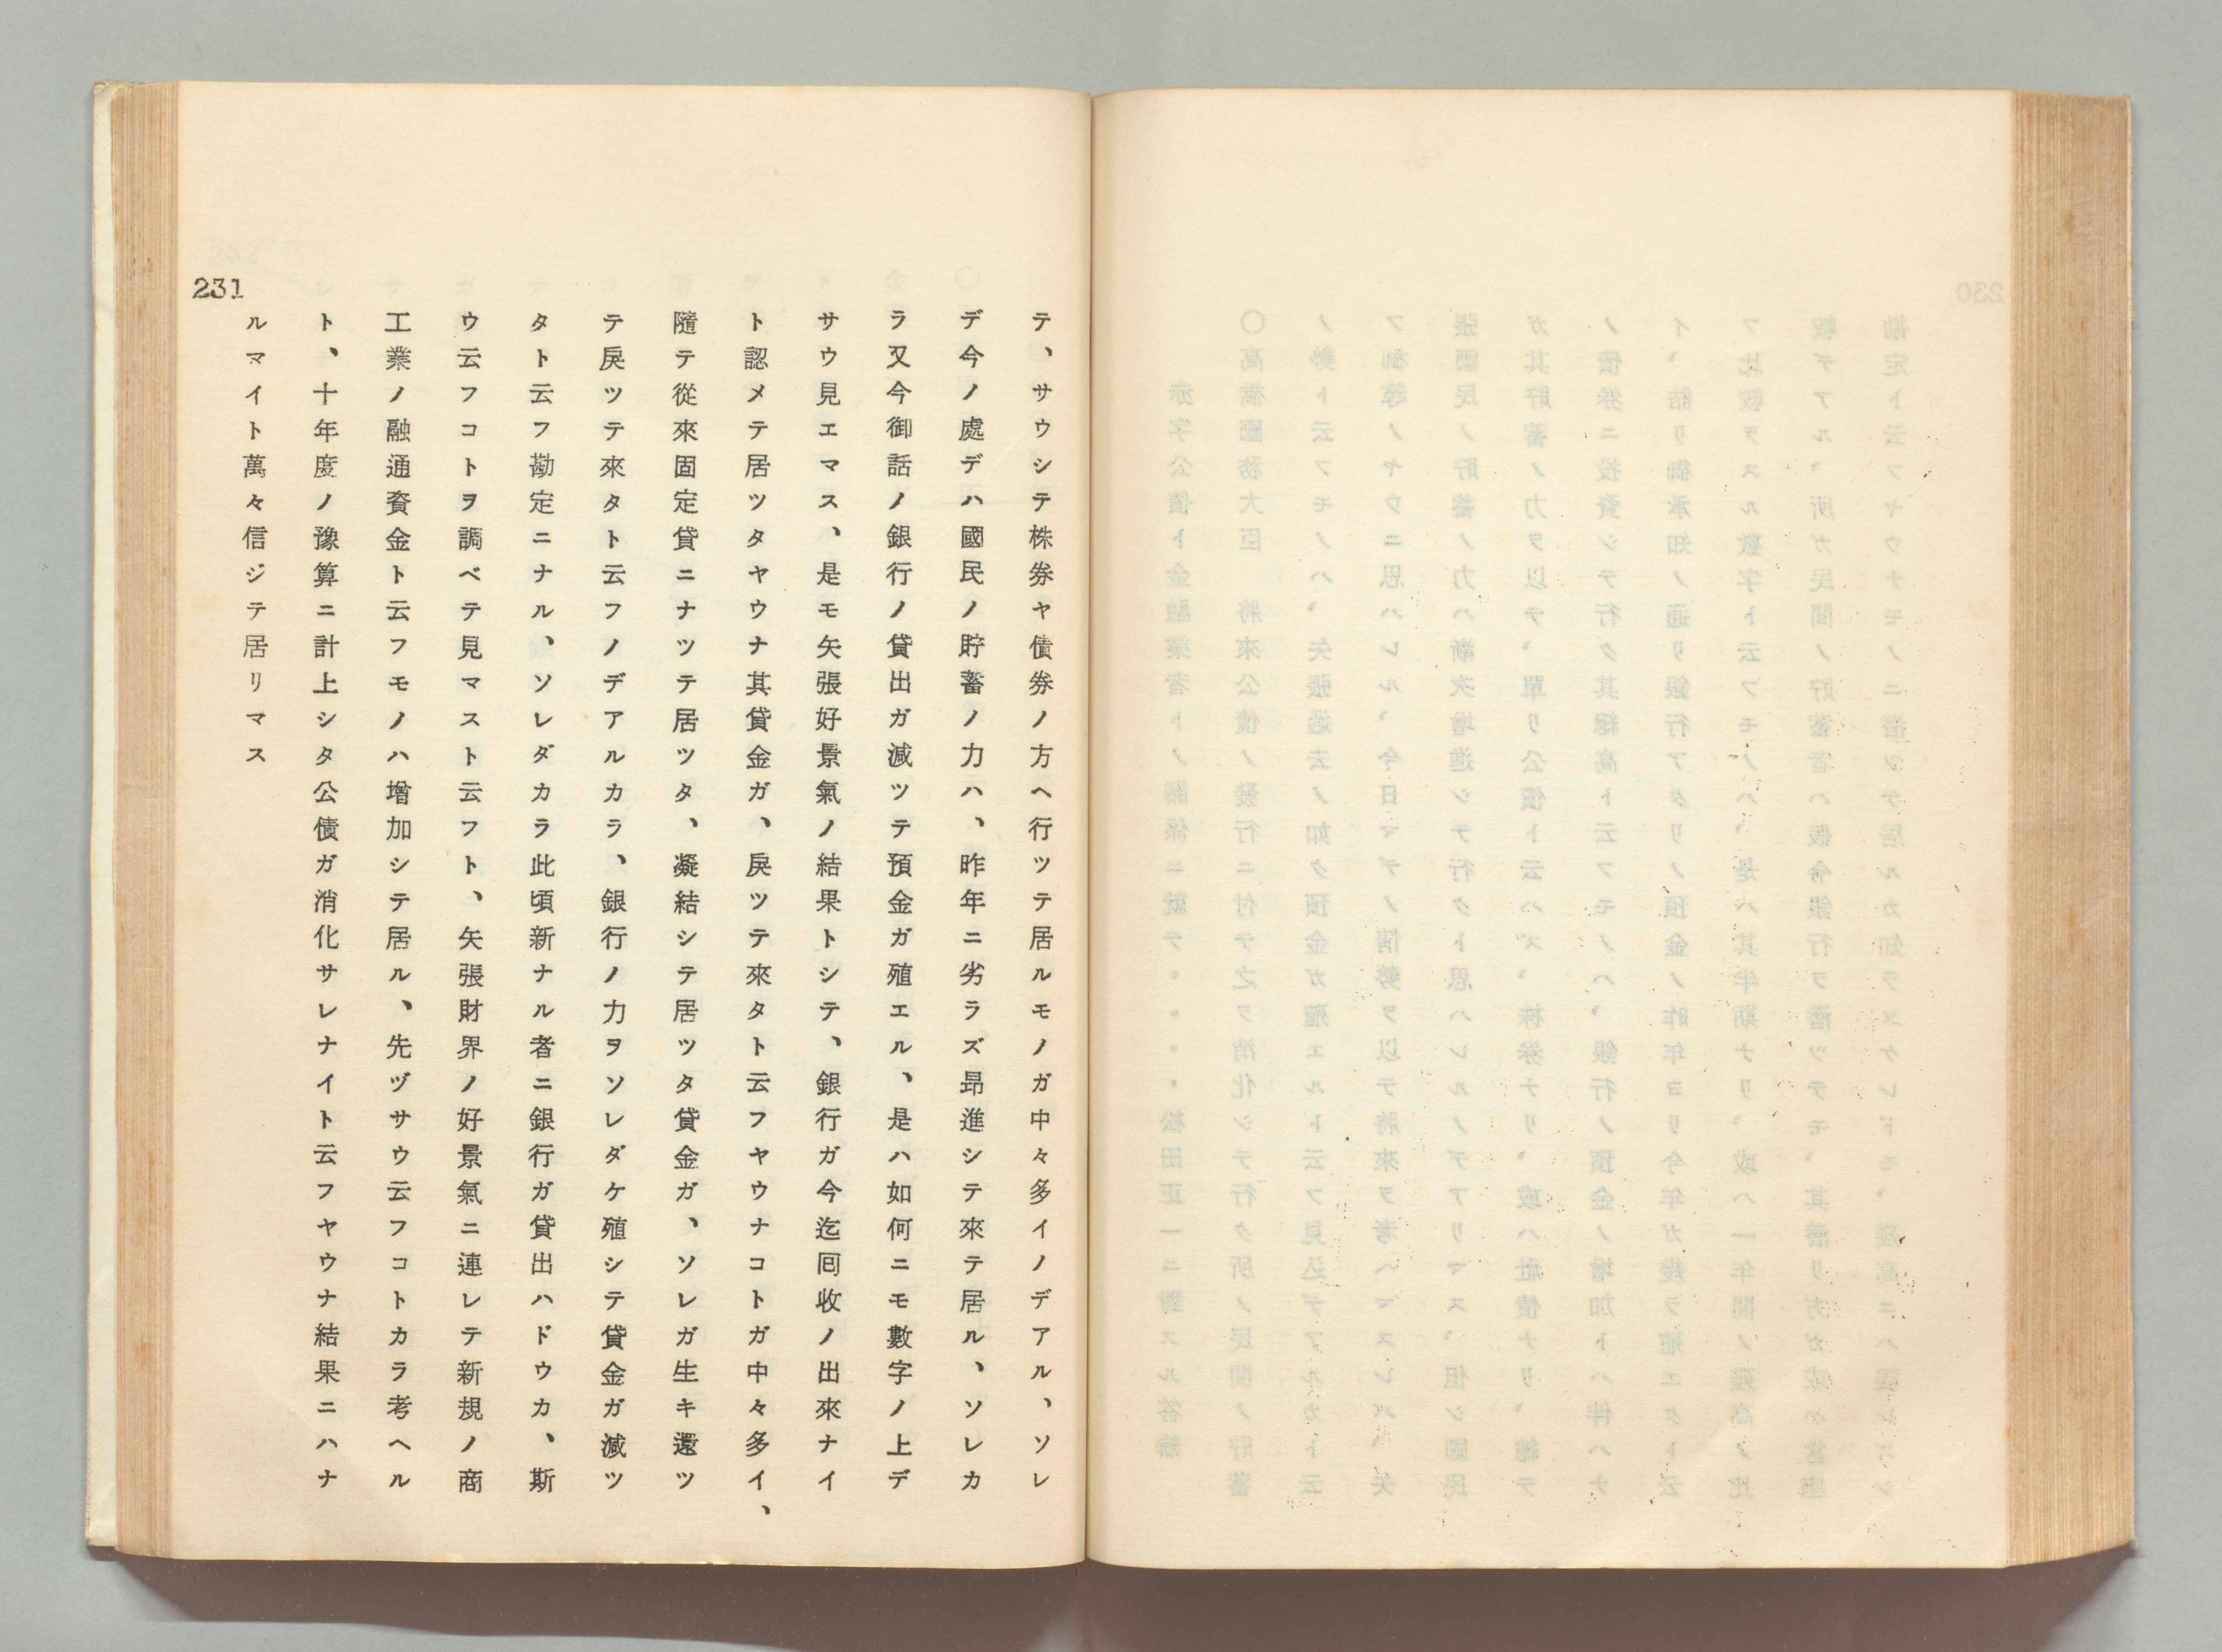 231
テ、サウシテ株券ヤ債券ノ方ヘ行ツテ居ルモノガ中々多イノデアル、ソレ
デ今ノ處デハ國民ノ貯蓄ノ力ハ、昨年ニ劣ラズ昂進シテ來テ居ル、ソレカ
ラ又今御話ノ銀行ノ貸出ガ減ツテ預金ガ殖エル、是ハ如何ニモ數字ノ上デ
サウ見エマス、是モ矢張好景氣ノ結果トシテ、銀行ガ今迄囘收ノ出來ナイ
ト認メテ居ツタヤウナ其貸金ガ、戾ツテ來タト云フヤウナコトガ中々多イ、
隨テ從來固定貸ニナツテ居ツタ、凝結シテ居ツタ貸金ガ、ソレガ生キ還ツ
テ戾ツテ來タト云フノデアルカラ、銀行ノ力ヲソレダケ殖シテ貸金ガ減ツ
タト云フ勘定ニナル、ソレダカラ此頃新ナル者ニ銀行ガ貸出ハドウカ、斯
ウ云フコトヲ調ベテ見マスト云フト、矢張財界ノ好景氣ニ連レテ新規ノ商
工業ノ融通資金ト云フモノハ增加シテ居ル、先ヅサウ云フコトカラ考ヘル
ト、十年度ノ豫算ニ計上シタ公債ガ消化サレナイト云フヤウナ結果ニハナ
ルマイト萬々信ジテ居リマス